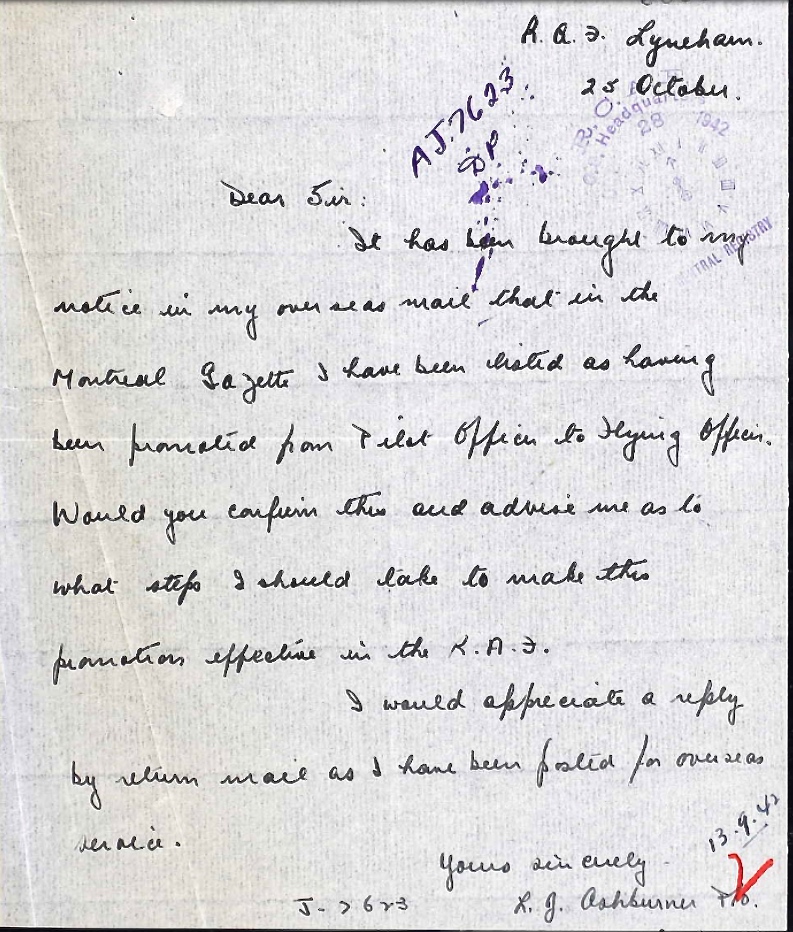 R.A.F. Lyneham.
25 October.
AJ.7623
DP
R.C.A.F.
Headquarters
28 1942
TRAL REGISTRY
Dear Sir:
It has been brought to my
notice in my overseas mail that in the
Montreal Gazette I have been listed as having
been promoted from Pilot Officer to Flying Officer.
Would you confirm this and advise me as to
what steps I should take to make this
promotion effective in the R.A.F.
I would appreciate a reply
by return mail as I have been posted for overseas
service.
13.9.42
Yours sincerely
J-7623 L. J. Ashburner P/O.